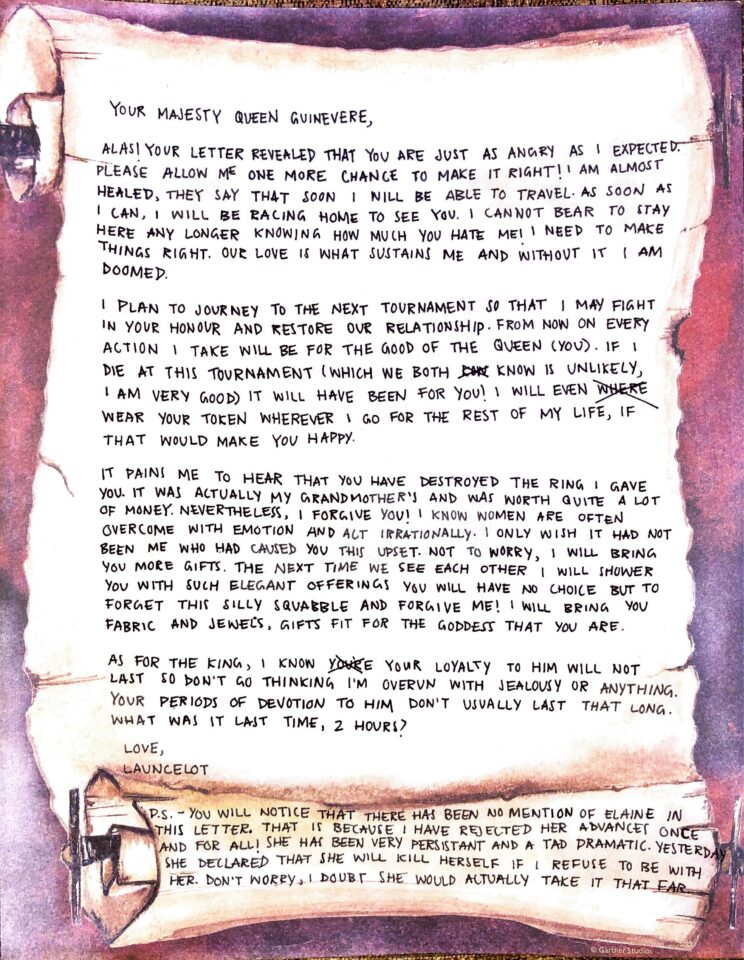 YOUR MAJESTY QUEEN GUINEVERE,
ALAS! YOUR LETTER REVEALED THAT YOU ARE JUST AS ANGRY AS I EXPECTED.
PLEASE ALLOW ME ONE MORE CHANCE TO MAKE IT RIGHT! I AM ALMOST
HEALED, THEY SAY THAT SOON I NILL BE ABLE TO TRAVEL. AS SOON AS
I CAN, I WILL BE RACING HOME TO SEE YOU. I CANNOT BEAR TO STAY
HERE ANY LONGER KNOWING HOW MUCH YOU HATE ME! I NEED TO MAKE
THINGS RIGHT. OUR LOVE IS WHAT SUSTAINS ME AND WITHOUT IT I AM
DOOMED.
I PLAN TO JOURNEY TO THE NEXT TOURNAMENT SO THAT I MAY FIGHT
IN YOUR HONOUR AND RESTORE OUR RELATIONSHIP. FROM NOW ON EVERY
ACTION I TAKE WILL BE FOR THE GOOD OF THE QUEEN (YOU). IF I
DIE AT THIS TOURNAMENT (WHICH WE BOTH KNOW IS UNLIKELY,
I AM VERY GOOD) IT WILL HAVE BEEN FOR YOU! I WILL EVEN WHERE
WEAR YOUR TOKEN WHEREVER I GO FOR THE REST OF MY LIFE, IF
THAT WOULD MAKE YOU HAPPY.
IT PAINS ME TO HEAR THAT YOU HAVE DESTROYED THE RING I GAVE
YOU. IT WAS ACTUALLY MY GRANDMOTHER'S AND WAS WORTH QUITE A LOT
OF MONEY. NEVERTHELESS, I FORGIVE YOU! I KNOW WOMEN ARE OFTEN
OVERCOME WITH EMOTION AND ACT IRRATIONALLY. I ONLY WISH IT HAD NOT
BEEN ME WHO HAD CAUSED YOU THIS UPSET. NOT TO WORRY, I WILL BRING
YOU MORE GIFTS. THE NEXT TIME WE SEE EACH OTHER I WILL SHOWER
YOU WITH SUCH ELEGANT OFFERINGS YOU WILL HAVE NO CHOICE BUT TO
FORGET THIS SILLY SQUABBLE AND FORGIVE ME! I WILL BRING YOU
FABRIC AND JEWELS, GIFTS FIT FOR THE GODDESS THAT YOU ARE.
AS FOR THE KING, I KNOW YOUR LOYALTY TO HIM WILL NOT
LAST SO DON'T GO THINKING I'M OVERUN WITH JEALOUSY OR ANYTHING.
YOUR PERIODS OF DEVOTION TO HIM DON'T USUALLY LAST THAT LONG.
WHAT WAS IT LAST TIME, 2 HOURS?
LOVE,
LAUNCELOT
P.S. - YOU WILL NOTICE THAT THERE HAS BEEN NO MENTION OF ELAINE IN
THIS LETTER. THAT IS BECAUSE I HAVE REJECTED HER ADVANCES ONCE
AND FOR ALL! SHE HAS BEEN VERY PERSISTANT AND A TAD DRAMATIC. YESTERDAY
SHE DECLARED THAT SHE WILL KILL HERSELF IF I REFUSE TO BE WITH
HER. DON'T WORRY, I DOUBT SHE WOULD ACTUALLY TAKE IT THAT FAR.
© Gartner Studios